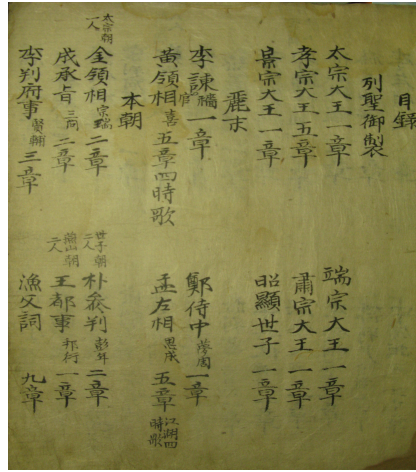 目錄
列聖御製
太宗大王一章 端宗大王一章
孝宗大王五章 肅宗大王一章
景宗大王一章 昭顯世子一章
麗末
李諫官 一章 鄭侍中夢周一章
黃領相喜五章四時歌 孟左相思成五章江湖四時歌
本朝
太宗朝一人 金領相宗瑞二章 世子朝二人 朴參判彭年二章
成承旨三問二章 燕山朝二人 王都事邦衍一章
李判府事賢輔三章 漁父詞九章